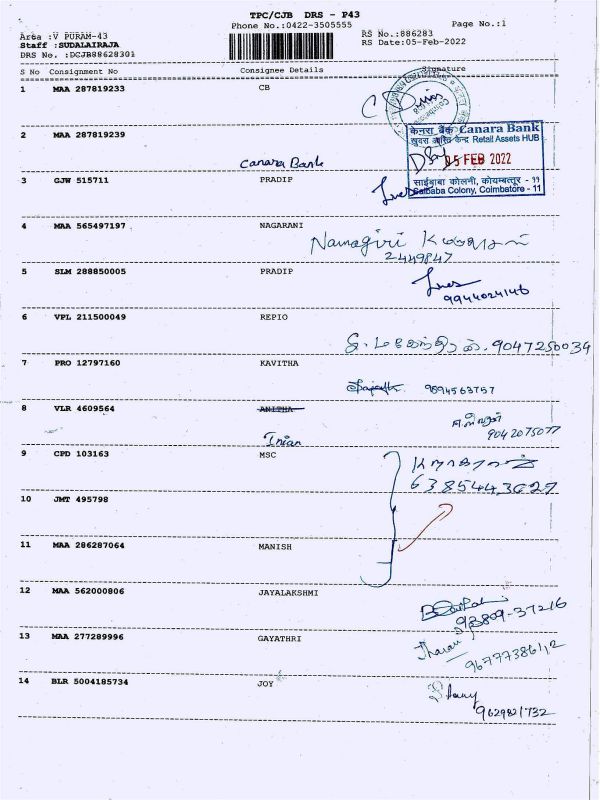 TPC/CJB DRS - P43
Phone No.:0422-3505555 Page No.:1
Area :V PURAM-43 RS No.:886283
Staff :SUDALAIRAJA RS Date:05-Feb-2022
DRS No. :DCJB88628301
S No Consignment No Consignee Details Signature
1 MAA 287819233 CB
2 MAA 287819239
केनरा बैंक Canara Bank
Retail Assets HUB
05 FEB 2022
साईबाबा कोलनी, कोयम्बत्तूर - 11
Saibaba Colony, Coimbatore - 11
Canara Bank
3 GJW 515711 PRADIP
4 MAA 565497197 NAGARANI
Namagiri
2449847
5 SLM 288850005 PRADIP
9944024146
6 VPL 211500049 REPIO
9047250034
7 PRO 12797160 KAVITHA
9894563757
8 VLR 4609564 ANITHA
9042075077
Inian
9 CPD 103163 MSC
6385443627
10 JMT 495798
11 MAA 286287064 MANISH
12 MAA 562000806 JAYALAKSHMI
93809-37216
13 MAA 277289996 GAYATHRI
Tharani
96777386112
14 BLR 5004185734 JOY
9629821732